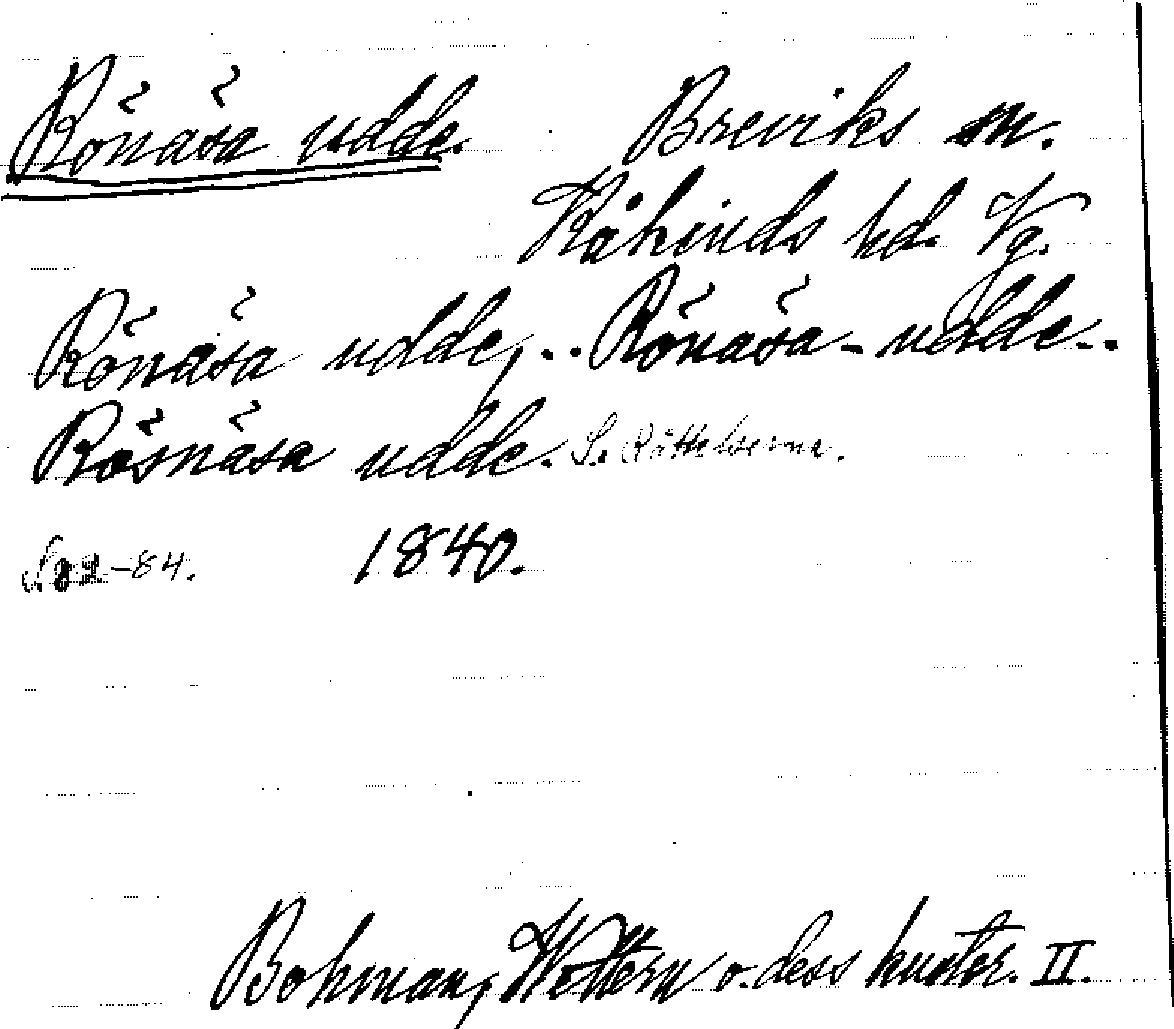 Rönäsa udde. Breviks sn.
Kåkinds hd. Vg.
Rönäsa udde, .. Rönäsa-udde..
Rösnäsa udde. S. Rättelserna.
S. 82-84. 1840.
Bohman, Wettern o. dess kuster. II.